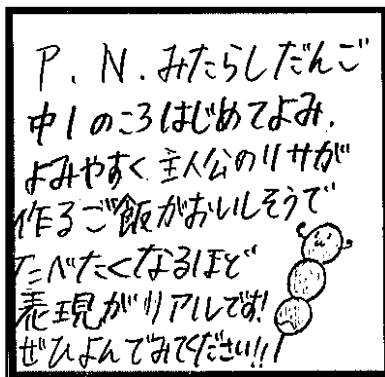 P.N.みたらしだんご
中1のころはじめてよみ、
よみやすく主人公のリサが
作るご飯がおいしそうで
たべたくなるほど
表現がリアルです!
ぜひよんでみてください!!